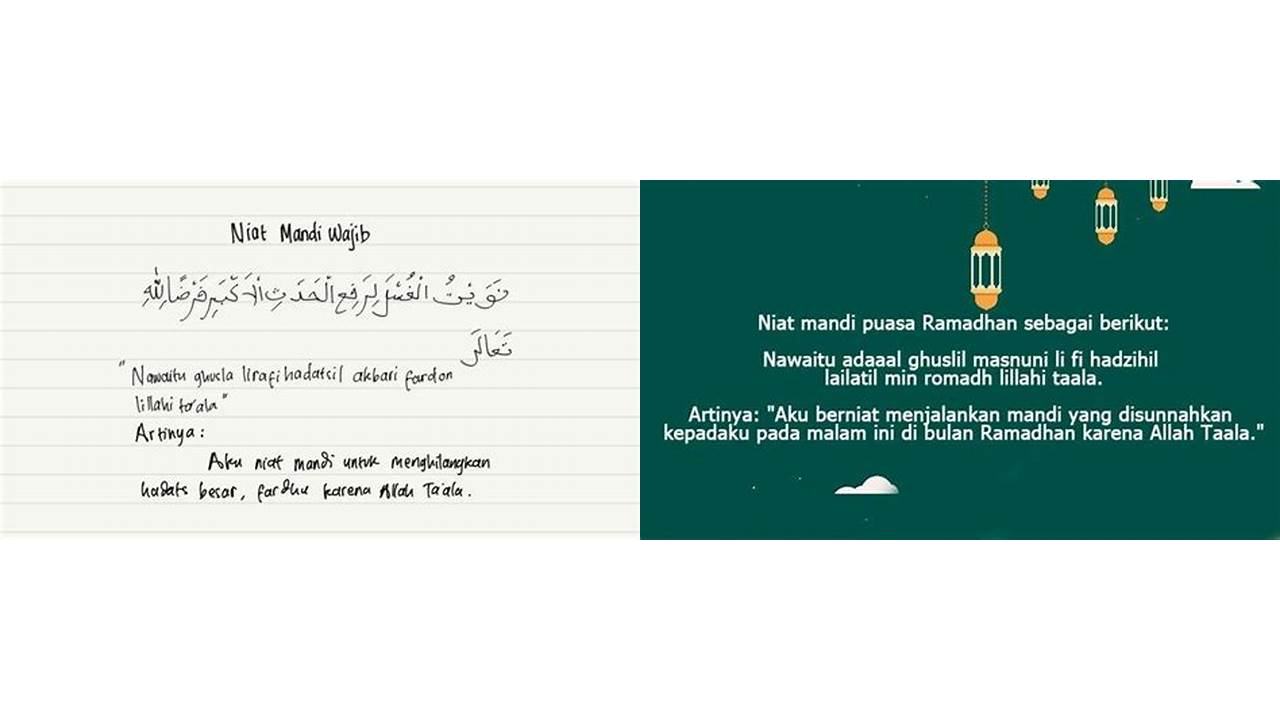 Niat Mandi Wajib
نَوَيْتُ الْغُسْلَ لِرَفْعِ الْحَدَثِ الْاَكْبَرِ فَرْضًا لِلّٰهِ
تَعَالَى
"Nawaitu ghusla lirafi hadatsil akbari fardon
lillahi ta'ala"
Artinya:
Aku niat mandi untuk menghilangkan
hadats besar, fardhu karena Allah Ta'ala.
Niat mandi puasa Ramadhan sebagai berikut:
Nawaitu adaaal ghuslil masnuni li fi hadzihil
lailatil min romadh lillahi taala.
Artinya: "Aku berniat menjalankan mandi yang disunnahkan
kepadaku pada malam ini di bulan Ramadhan karena Allah Taala."